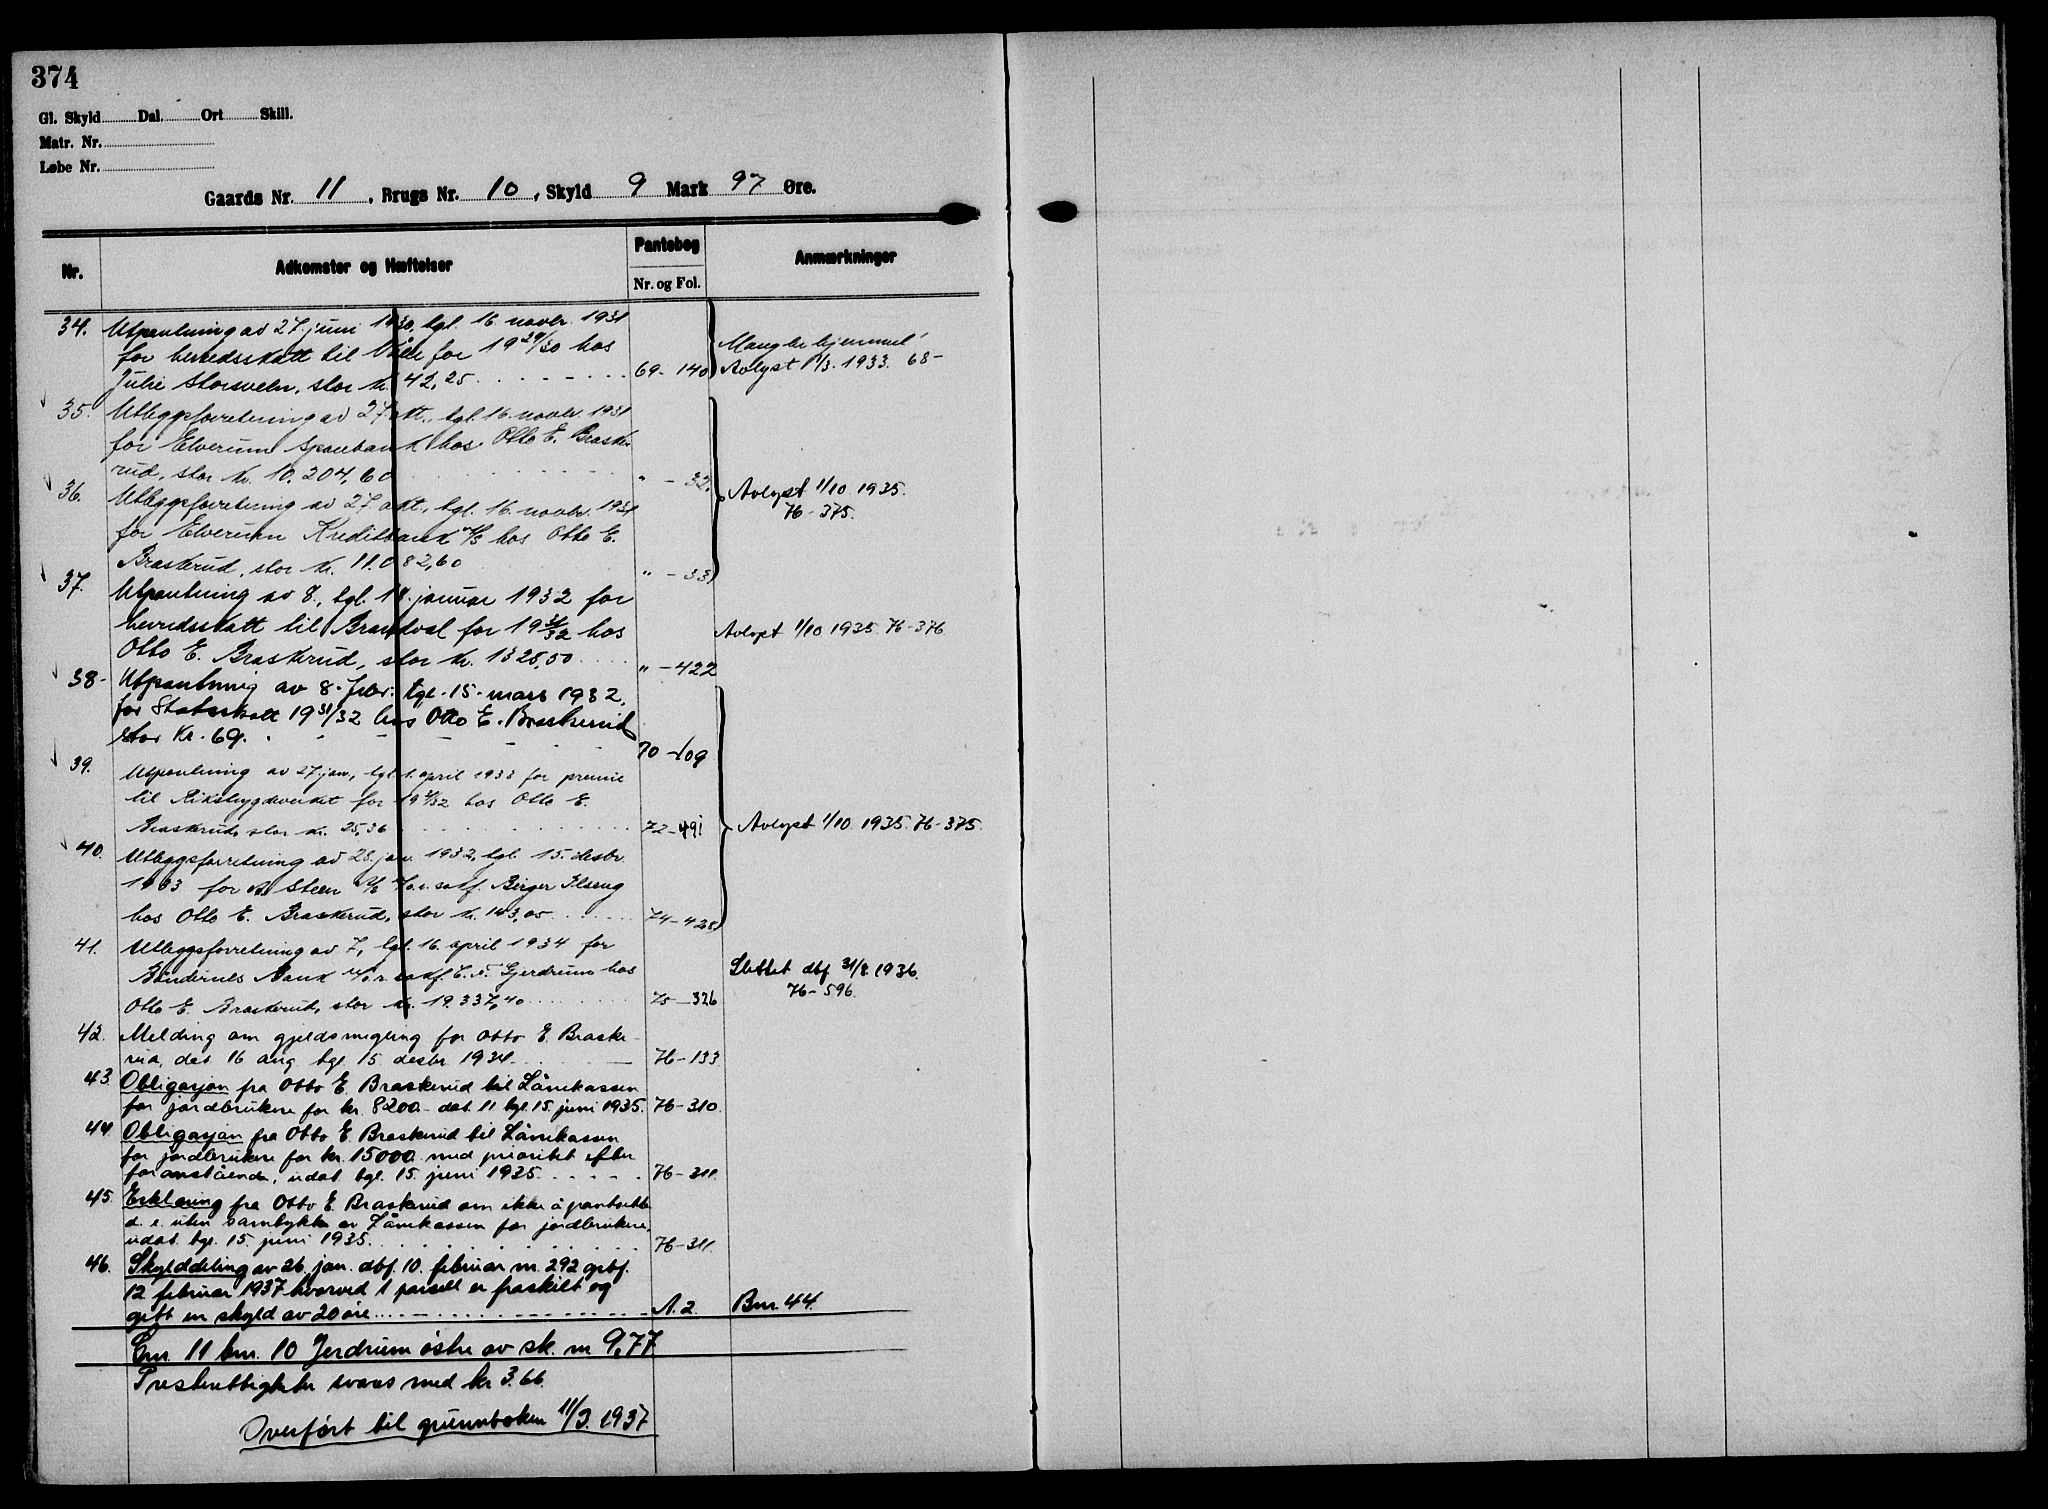 374
Gl. Skyld Dal. Ort Skill.
Matr. Nr.
Løbe Nr.
Gaards Nr. 11, Brugs Nr. 10, Skyld 9 Mark 97 Øre.
Nr. Adkomster og Hæftelser Pantebog Nr. og Fol. Anmærkninger
34. Utpantning av 27. juni 1930, tgl. 16. novbr. 1931
for herredsskatt til Våler for 1929/30 hos
Julie Storsveen, stor kr. 42,25 69-140 Mangler hjemmel!
Avlyst 1/3. 1933. 68-
35. Utleggsforretning av 27. okt., tgl. 16. novbr. 1931
for Elverum Sparebank hos Otto E. Braske-
rud, stor kr. 10.204,60 " - 32.
36. Utleggsforretning av 27 okt., tgl. 16. novbr. 1931
for Elverum Kreditbank A/S hos Otto E.
Braskerud, stor kr. 11.082,60 " - 33. Avlyst 1/10 1935.
76-375.
37. Utpantning av 8., tgl. 18. januar 1932 for
herredsskatt til Brandval for 1931/32 hos
Otto E. Braskerud, stor kr. 1325,50 " - 422 Avlyst 1/10 1935. 76-376
38- Utpantning av 8. febr. tgl. 15. mars 1932.
for Statsskatt 1931/32 hos Otto E. Braskerud
stor Kr. 69. 70-109
39. Utpantning av 27. jan., tgl. 1. april 1933 for premie
til Rikstrygdeverket for 1931/32 hos Otto E.
Braskerud, stor kr. 25,36 72-491 Avlyst 1/10. 1935. 76-375.
40. Utleggsforretning av 28. jan. 1932, tgl. 15. desbr.
1933 for Steen A/S v/o.r.sakf. Birger Ilseng
hos Otto E. Braskerud, stor kr. 143,05 74-428
41. Utleggsforretning av 7., tgl. 16. april 1934 for
Bøndernes Bank v/o.r.sakf. Gjerdrum hos
Otto E. Braskerud, stor kr. 19.337,40 75-326 Slettet dbf 31/8 1936.
76-596.
42. Melding om gjeldsmegling for Otto E. Braske-
rud, dat. 16 aug tgl 15 desbr 1934. 76-133
43. Obligasjon fra Otto E. Braskerud til Lånekassen
for jordbrukere for kr. 8200.- dat. 11 tgl. 15. juni 1935. 76-310.
44. Obligasjon fra Otto E. Braskerud til Lånekassen
for jordbrukere for kr. 15000. med prioritet efter
foranstående, udat. tgl. 15. juni 1935. 76-311.
45. Erklæring fra Otto E. Braskerud om ikke å pantsette
d. e. uten samtykke av Lånekassen for jordbrukere,
udat. tgl. 15. juni 1935. 76-311.
46. Skylddeling av 26. jan. dbf. 10. februar nr. 292 grbf.
12 februar 1937 hvorved 1 parsell er fraskilt og
gitt en skyld av 20 øre A.2. Bnr. 44.
Gnr. 11 bnr. 10 Jerdrum østre av sk. m. 9,77
Presterettigheter svares med kr. 3.66.
Overført til grunnboken 11/3. 1937